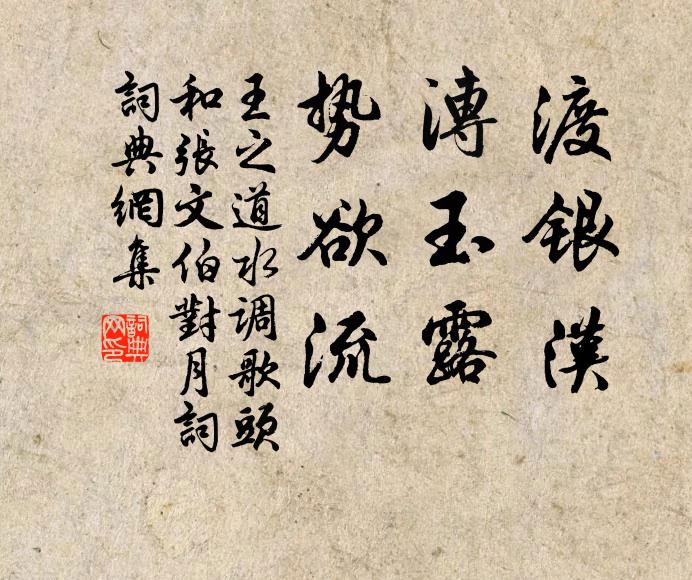 渡银漢
漙玉露
势欲流
王之道水调歌頭
和張文伯對月詞
詞典網集
詞典网印